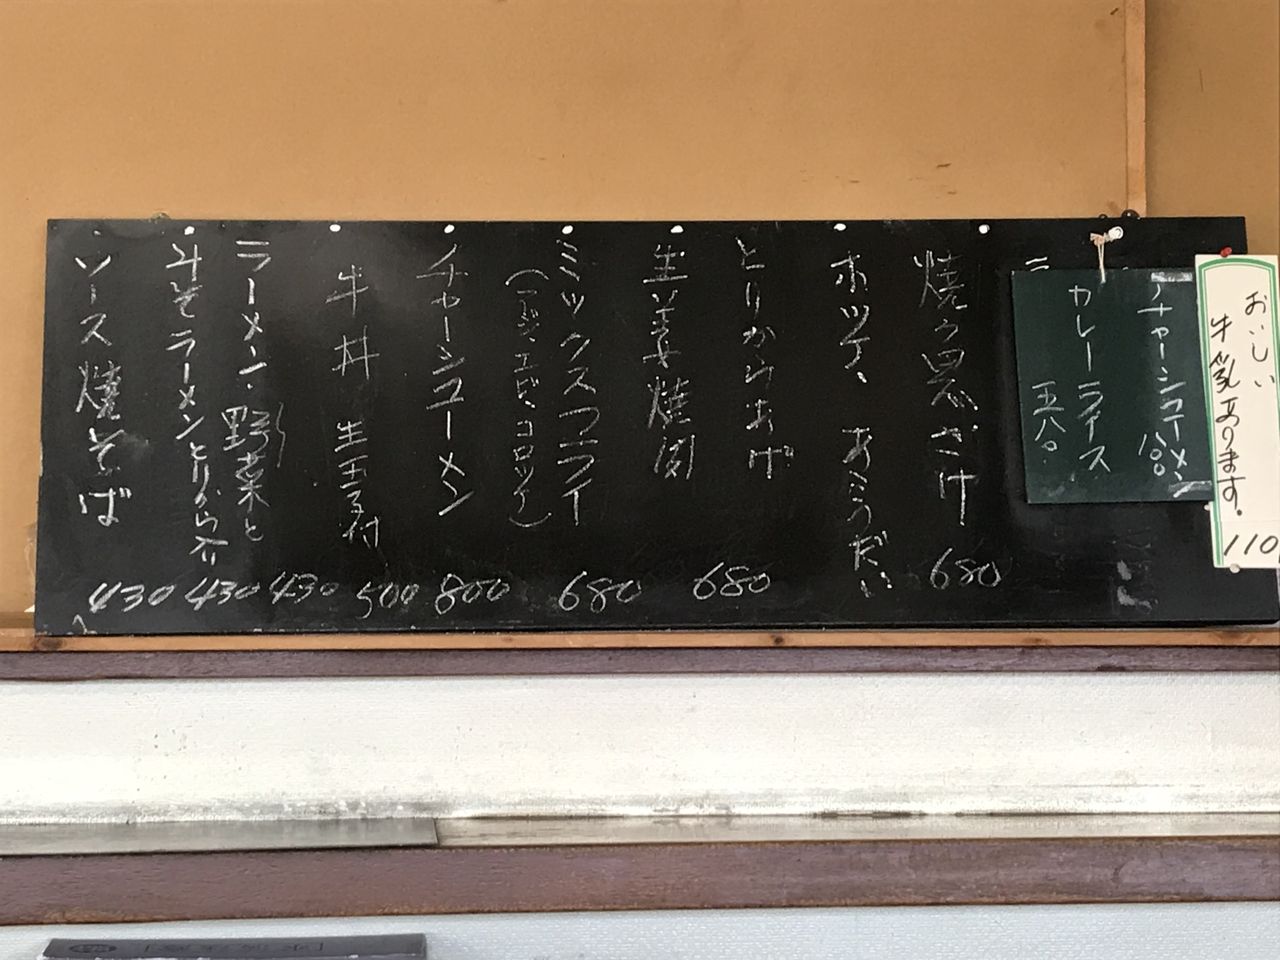 おいしい
牛乳あります。
110
チャーシューメン
八〇〇
カレーライス
五八〇
680
ホッケ、
とりからあげ
680
生姜焼肉
ミックスフライ
コロッケ)
680
チャーシューメン
800
牛丼 生玉子付
500
ラーメン・野菜と
430
みそラーメンとりから介
430
ソース焼そば
430